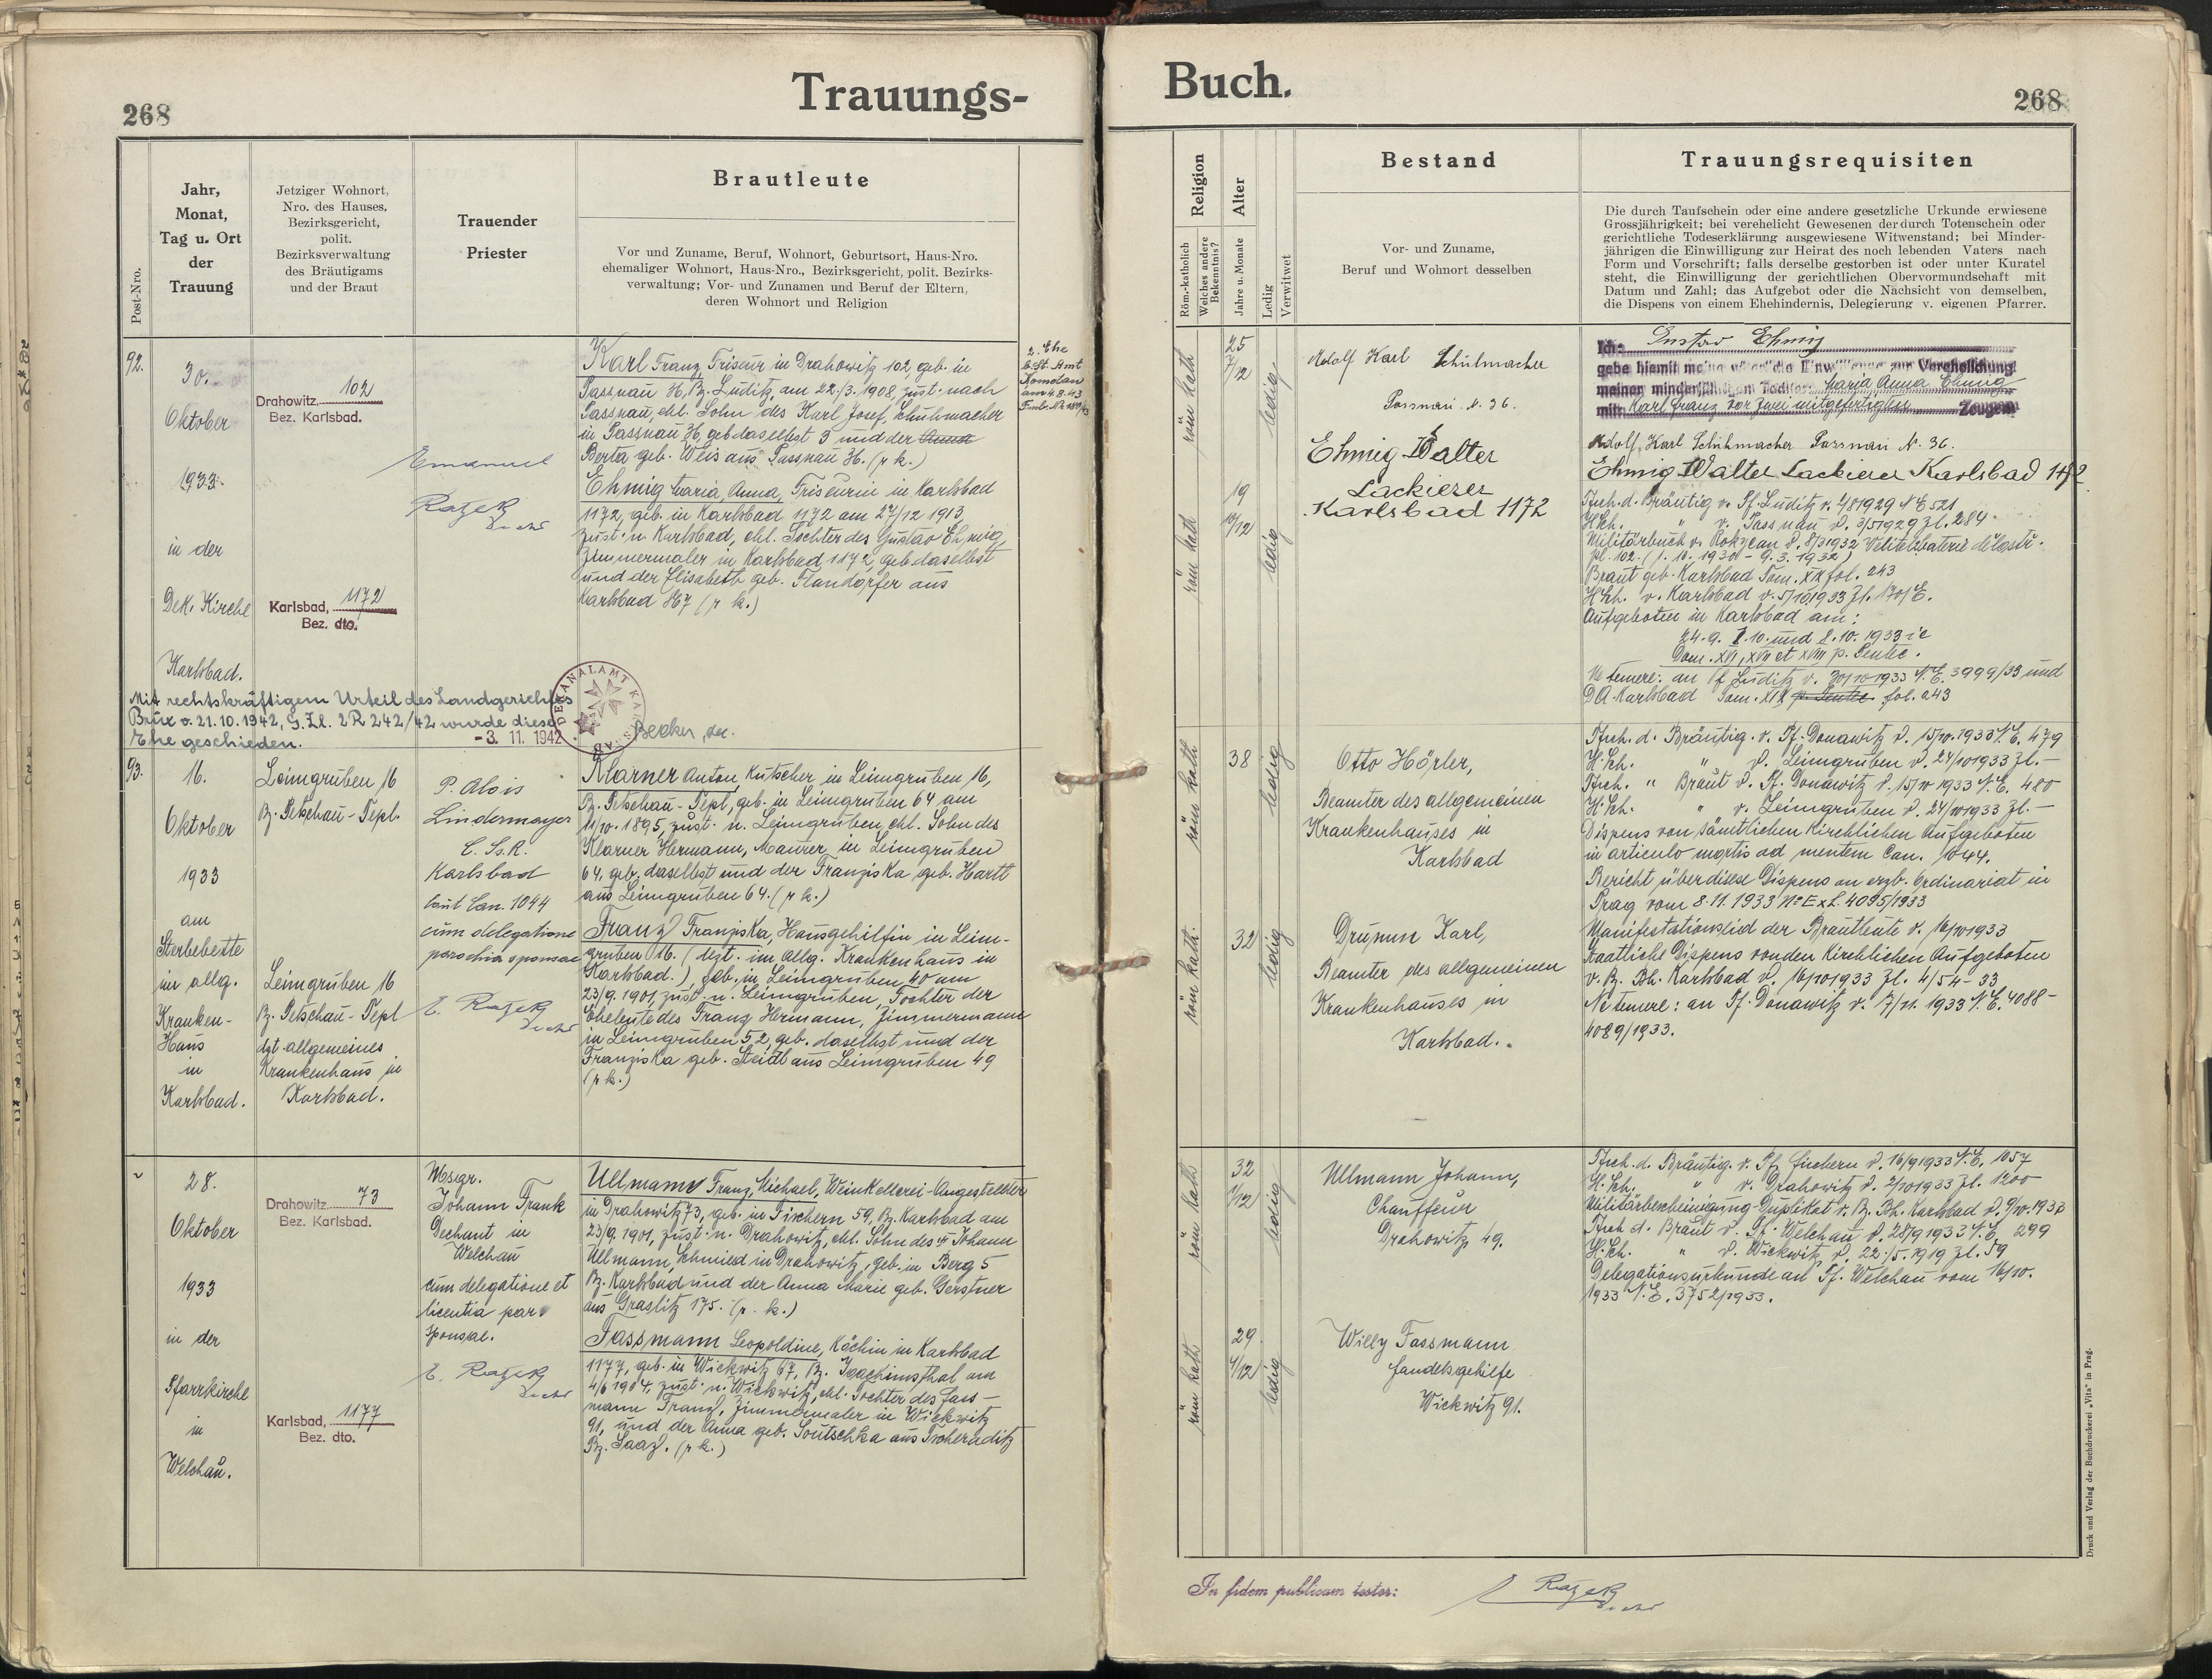 268
Trauungs-
Post-Nro.
Jahr,
Monat,
Tag u. Ort
der
Trauung
Jetziger Wohnort,
Nro. des Hauses,
Bezirksgericht,
polit.
Bezirksverwaltung
des Bräutigams
und der Braut
Trauender
Priester
Brautleute
Vor und Zuname, Beruf, Wohnort, Geburtsort, Haus-Nro.
ehemaliger Wohnort, Haus-Nro., Bezirksgericht, polit. Bezirks-
verwaltung; Vor- und Zunamen und Beruf der Eltern,
deren Wohnort und Religion
92.
30.
Oktober
1933.
in der
Dek. Kirche
Karlsbad.
Drahowitz 102
Bez. Karlsbad.
Karlsbad, 1172
Bez. dto.
Emanuel
Karl Franz, Friseur in Drahowitz 102 geb. in
Passnau 36, Bz. Luditz, am 22./3. 1908, zust. nach
Passnau, ehl. Sohn des Karl Josef, Schuhmacher
in Passnau 36, geb. daselbst 3 und der Anna
Berta geb. Weis aus Passnau 36. (r k.)
Ehmig Maria, Anna, Friseurin in Karlsbad
1172, geb. in Karlsbad 1172 am 27/12 1913,
zust. n. Karlsbad, ehl. Tochter des Gustav Ehmig,
Zimmermaler in Karlsbad 1172, geb. daselbst
und der Elisabeth geb. Flandorfer aus
Karlsbad 367 (r k.)
2. Ehe
St. Amt
Komotau
am 4.8.43
Mit rechtskräftigem Urteil des Landgerichtes
Brüx v. 21.10.1942, G.Zl. 2 R 242/42 wurde diese
Ehe geschieden.
-3. 11. 1942
DEKANALAMT
Becker
93.
16.
Oktober
1933
am
Sterbebette
im allg.
Kranken-
Haus
in
Karlsbad.
Leimgruben 16
Bz. Petschau-Tepl.
Leimgruben 16
Bz. Petschau-Tepl
dzt. allgemeines
Krankenhaus in
Karlsbad.
P. Alois
Lindermayer
C. Ss. R.
Karlsbad
laut Can. 1044
cum delegatione
parochia sponsae
Klarner Anton, Kutscher in Leimgruben 16,
Bz. Petschau-Tepl, geb. in Leimgruben 64 am
11/10. 1895, zust. n. Leimgruben, ehl. Sohn des
Klarner Hermann, Maurer in Leimgruben
64, geb. daselbst und der Franziska geb. Hartl
aus Leimgruben 64. (r k.)
Franzl Franziska, Hausgehilfin in Leim-
gruben 16. (dzt. im allg. Krankenhaus in
Karlsbad.), geb. in Leimgruben 40 am
23/9. 1901, zust. n. Leimgruben, Tochter der
Eheleute des Franz Hermann, Zimmermann
in Leimgruben 52, geb. daselbst und der
Franziska geb. Steidl aus Leimgruben 49
(r k.)
28.
Oktober
1933
in der
Pfarrkirche
in
Welchau.
Drahowitz 73
Bez. Karlsbad.
Karlsbad, 1177
Bez. dto.
Msgr.
Johann Frank
Dechant in
Welchau
cum delegatione et
licentia par
sponsae.
Ullmann Franz, Michael, Weinkellerei-Angestellter
in Drahowitz 73, geb. in Fischern 59, Bz. Karlsbad am
23/9. 1901, zust. n. Drahowitz, ehl. Sohn des Johann
Ullmann, Schmied in Drahowitz, geb. in Berg 5
Bz. Karlsbad und der Anna Marie geb. Gerstner
aus Graslitz 175. (r. k.)
Fassmann Leopoldine, Köchin in Karlsbad
1177, geb. in Wickwitz 67, Bz. Joachimsthal am
4/6 1904, zust. n. Wickwitz, ehl. Tochter des Fass-
mann Franz, Zimmermaler in Wickwitz
91, und der Anna geb. Soutschka aus
Bz. Saaz. (r k.)
Buch.
268
Religion
Röm.-katholisch
Welches andere
Bekenntnis?
Alter
Jahre u. Monate
Ledig
Verwitwet
Bestand
Vor- und Zuname,
Beruf und Wohnort desselben
Trauungsrequisiten
Die durch Taufschein oder eine andere gesetzliche Urkunde erwiesene
Grossjährigkeit; bei verehelicht Gewesenen der durch Totenschein oder
gerichtliche Todeserklärung ausgewiesene Witwenstand; bei Minder-
jährigen die Einwilligung zur Heirat des noch lebenden Vaters nach
Form und Vorschrift; falls derselbe gestorben ist oder unter Kuratel
steht, die Einwilligung der gerichtlichen Obervormundschaft mit
Datum und Zahl; das Aufgebot oder die Nachsicht von demselben,
die Dispens von einem Ehehindernis, Delegierung v. eigenen Pfarrer.
röm kath
25
7/12
ledig
Adolf Karl Schuhmacher
Passnau N. 36.
Ehmig Walter
Lackierer
Karlsbad 1172
röm kath
19
10/12
ledig
Ich: Gustav Ehmig
gebe hiemit meine väterliche Einwilligung zur Verehelichung
meiner minderjährigen Tochter: Maria Anna Ehmig
mit: Karl Franz vor zwei mitgefertigten Zeugen
Adolf, Karl Schuhmacher Passnau N. 36.
Ehmig Walter Lackierer Karlsbad 1172
Tsch. d. Bräutig v. Pf. Luditz v. 4/8 1929 N E 521
H.Sch. " v. Passnau d. 3/5 1929 Zl. 284
Militärbuch v. Rokycan d. 8/3 1932
Braut geb. Karlsbad Tom. XX fol. 243
H.Sch. v. Karlsbad v. 5/10 1933 Zl. 170/E.
Aufgeboten in Karlsbad am:
24.9. 1.10. und 8.10. 1933 i.e
Dom. XVI, XVII et XVIII p. Pentec.
Ne temere: an Pf Luditz v. 30/10 1933 N.E. 3999/33 und
DA. Karlsbad Tom. XIX p. Pentec. fol. 243
röm kath
38
ledig
Otto Hörler,
Beamter des allgemeinen
Krankenhauses in
Karlsbad
röm kath.
32
ledig
Drumm Karl,
Beamter des allgemeinen
Krankenhauses in
Karlsbad.
Tsch. d. Bräutig. v. Pf. Donawitz d. 15/10. 1933 N.E. 479
H.Sch. " d. Leimgruben d. 24/10 1933 Zl. —
Tsch. " Braut d. Pf. Donawitz d. 15/10 1933 N.E. 480
H.Sch. " v. Leimgruben d. 24/10 1933 Zl. —
Dispens von sämtlichen Kirchlichen Aufgeboten
in articulo mortis ad mentem Can. 1044.
Bericht über diese Dispens an erzb. Ordinariat in
Prag vom 8.11.1933 No Exh. 4095/1933
Manifestationseid der Brautleute d. 16/10 1933
Staatliche Dispens von den Kirchlichen Aufgeboten
v. Bz. Bh. Karlsbad d. 16/10 1933 Zl. 4/54-33
Ne temere: an Pf. Donawitz v. 7/11. 1933 N.E. 4088-
4089/1933.
röm kath
32
1/12
ledig
Ullmann Johann,
Chauffeur
Drahowitz 49.
röm kath
29
4/12
ledig
Willy Fassmann
Handelsgehilfe
Wickwitz 91.
Tsch. d. Bräutig. v. Pf. Fischern d. 16/9 1933 N.E. 1057
H.Sch. " v. Drahowitz d. 2/10 1933 Zl. 1200
Militärbescheinigung-Duplikat v. Bz. Bh. Karlsbad d. 9/10. 1933
Tsch d. Braut v. Pf. Welchau d. 28/9 1933 N.E. 299
H.Sch. " d. Wickwitz d. 22./5. 1919 Zl. 59
Delegationsurkunde an Pf. Welchau vom 16/10.
1933 N.E. 3752/1933.
In fidem publicam testor:
Druck und Verlag der Buchdruckerei „Vita“ in Prag.